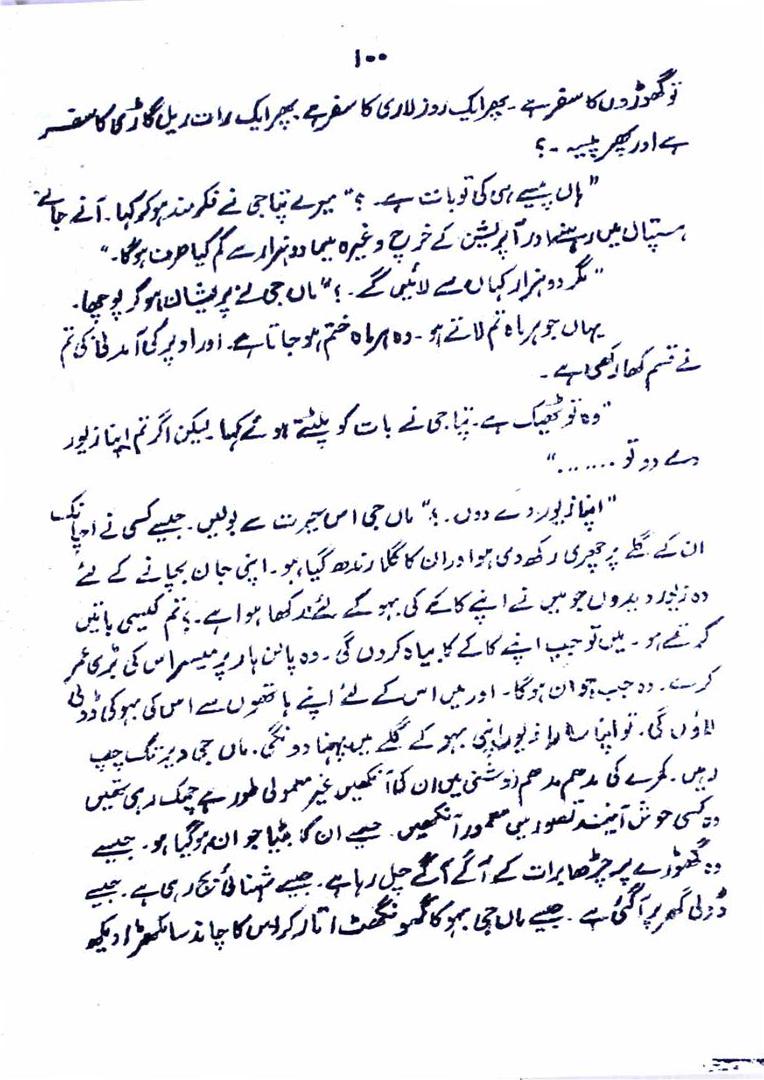 ۱۰۰
تو گھوڑوں کا سفر ہے ۔ پھر ایک روز لاری کا سفر ہے پھر ایک رات ریل گاڑی کا سفر
ہے اور پھر پیسہ ۔ ؟
"ہاں پیسے ہی کی تو بات ہے ۔ ؟" میرے پتاجی نے فکرمند ہو کر کہا ۔ آنے جانے
ہسپتال میں رہنے اور آپریشن کے خرچ وغیرہ میں دو ہزار سے کم کیا صرف ہوگا ۔"
"مگر دو ہزار کہاں سے لائیں گے ۔ ؟" ماں جی نے پریشان ہو کر پوچھا ۔
یہاں جو ہر ماہ تم لاتے ہو ۔ وہ ہر ماہ ختم ہو جاتا ہے ۔ اور اوپر کی آمدنی کی تم
نے قسم کھا رکھی ہے ۔
"وہ تو ٹھیک ہے ۔ پتاجی نے بات کو پلٹتے ہوئے کہا لیکن اگر تم اپنا زیور
دے دو تو ......."
"اپنا زیور دے دوں ۔ ؟" ماں جی اس حیرت سے بولیں ۔ جیسے کسی نے اچانک
ان کے گلے پر چھری رکھ دی ہو اور ان کا گلا رندھ گیا ہو ۔ اپنی جان بچانے کے لئے
وہ زیور دیدوں جو میں نے اپنے کاکے کی بہو کے لئے رکھا ہوا ہے ۔ ؟ تم کیسی باتیں
کرتے ہو ۔ میں تو جب اپنے کاکے کا بیاہ کروں گی ۔ وہ پالن ہار پرمیسر اس کی بڑی عمر
کرے ۔ وہ جب جوان ہوگا ۔ اور میں اس کے لئے اپنے ہاتھوں سے اس کی بہو کی ڈولی
لاؤں گی ۔ تو اپنا سارا زیور اپنی بہو کے گلے میں پہنا دونگی ۔ ماں جی دیر تک چپ
رہیں ۔ کمرے کی مدھم مدھم روشنی میں ان کی آنکھیں غیر معمولی طور سے چمک رہی تھیں
وہ کسی خوش آئیند تصور سی معمور آنکھیں جیسے ان کا بیٹا جوان ہو گیا ہو ۔ جیسے
وہ گھوڑے پر چڑھا برات کے آگے آگے چل رہا ہے ۔ جیسے شہنائی بج رہی ہے ۔ جیسے
ڈولی گھر پر آ گئی ہے ۔ جیسے ماں جی بہو کا گھونگھٹ اتار کر اس کا چاند سا مکھڑا دیکھ